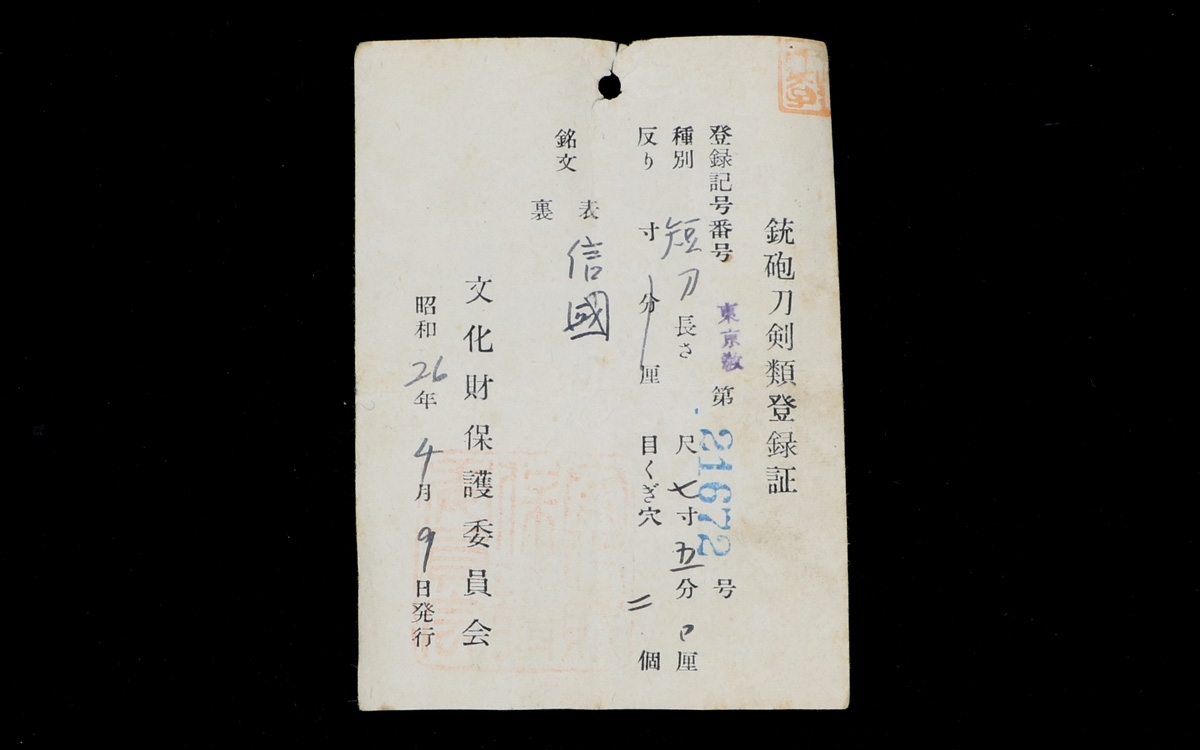 銃砲刀剣類登録証
登録記号番号 東京教 第 21672 号
種別 短刀 長さ 尺 七寸 五分 0厘
反り 寸 分 厘 目くぎ穴 二 個
銘文 表 信國
裏
文化財保護委員会
昭和 26年 4月 9日発行